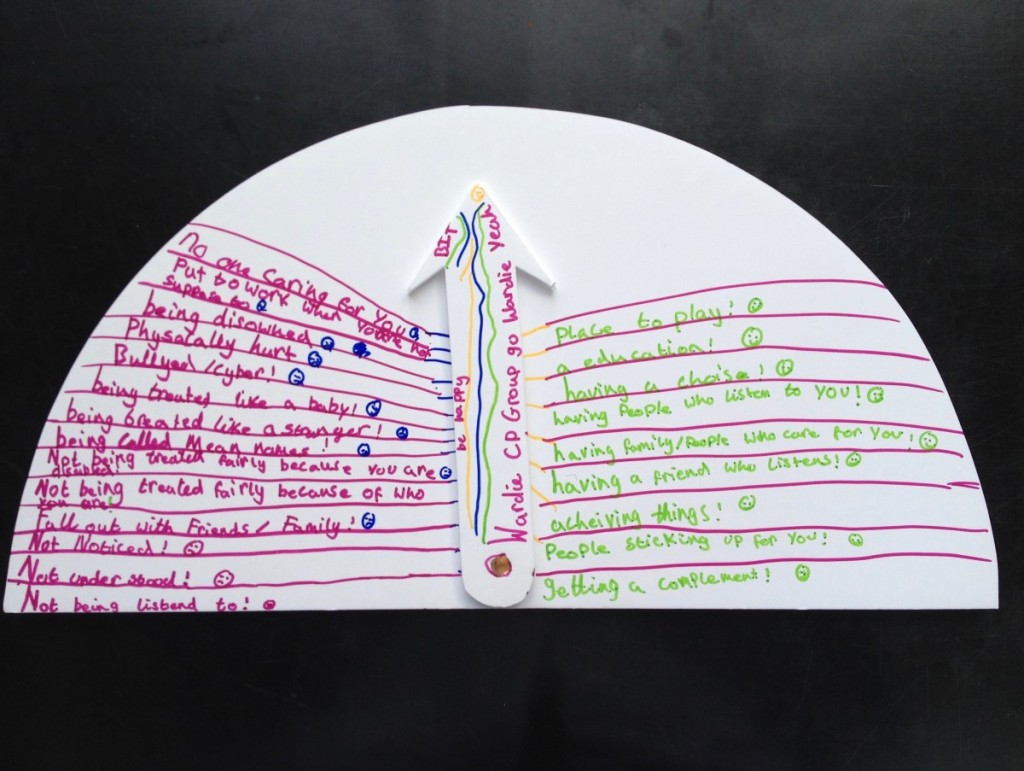 No one caring for you
Put to work when youre not
suppose to
being disowned
Physacally hurt
Bullyed/cyber!
being treated like a baby!
being treated like a stranger!
being called Mean names!
Not being treated fairly because you are
disabled!
Not being treated fairly because of who
you are!
Fall out with Friends/Family!
Not Noticed!
Not under stood!
Not being listend to!
BIT
be happy
Wardie CP Group go Wardie Yeah
Place to play!
a education!
having a choise!
having People who listen to you!
having family/People who care for you!
having a friend who listens!
acheiving things!
People sticking up for you!
getting a complement!